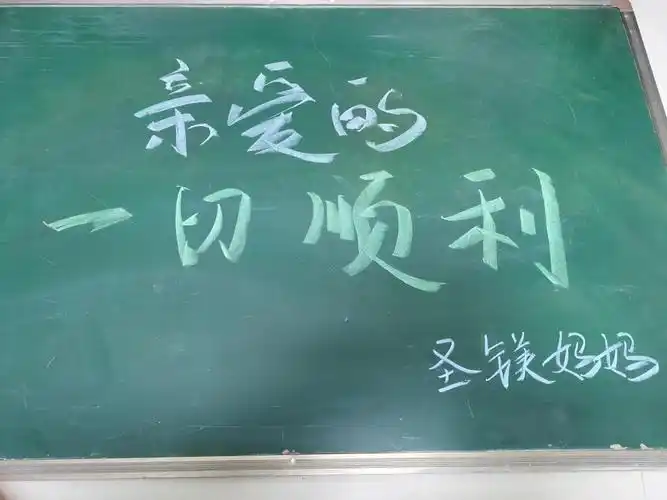 亲爱的
一切顺利
圣镁妈妈